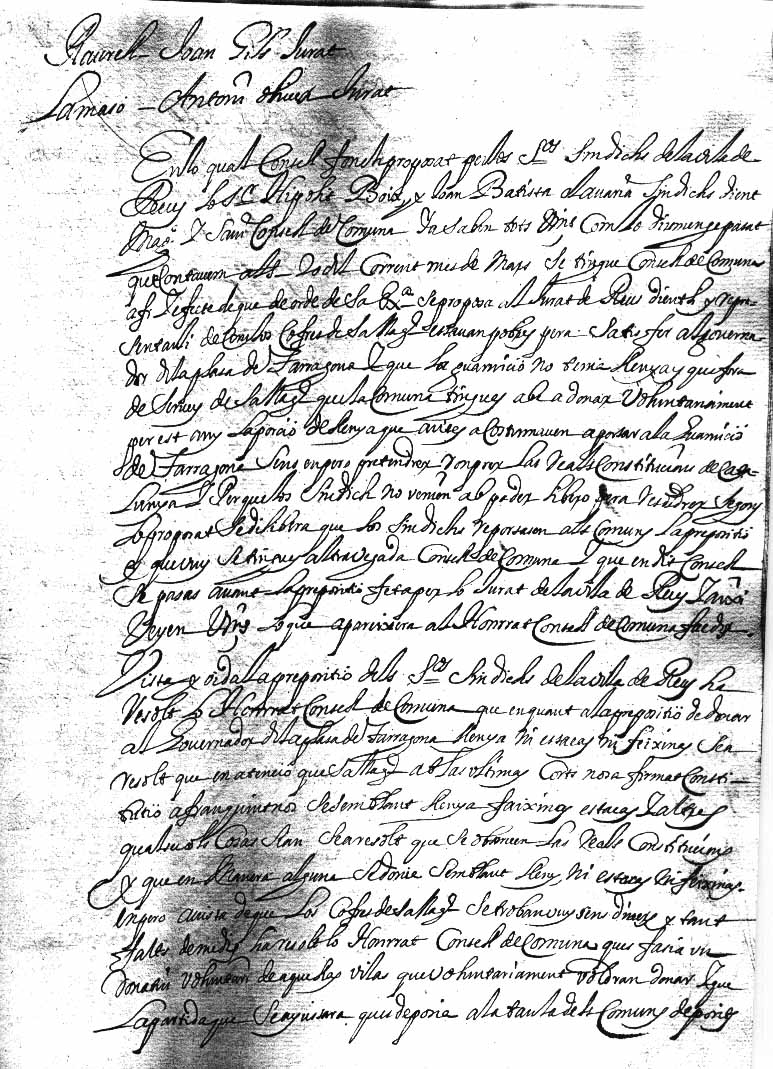 Raurell – Joan Gili Jurat
Lamasó – Antoni Jurat
En lo qual Consell fonch proposat per los Srs Sindichs de la vila de
Reus lo Sr Hipolit Boix, y Joan Batista Sindichs dient
Magc y Savi Consell de Comuna Ja saben tots Vms Com lo diumenge pasat
que Contavem als 20 del Corrent mes de Mars Se tingue Consell de Comuna
a fi y efecte de que de orde de Sa Exa Se proposa al Jurat de Reus dientli y repre-
sentanli de Com los Cofres de Sa Magt estavan pobres pera Satisfer al governa
dor de la plasa de Tarragona y que la guarnició no tenia llenya y que fora
de Servey de Sa Magt que la Comuna tingues a be a donar Voluntariament
per est any la porció de llenya que a portar a la Guarnició
de Tarragona Sens empero pretendrer romprer las Reals Constitucions de Cata-
lunya y Perque los Sindichs no venian ab poder pera resoldrer Segons
lo proposat Se delibera que los Sindichs reportasen als Comuns la propositió
y que vuy Se tingues altra vegada Consell de Comuna y que en dit Consell
Se posas avant la propositió feta per lo Jurat de la vila de Reus y axi
Vejen Vms lo que apareixera al Honrrat Consell de Comuna faedor.
Vista y oida la propositió dels Srs Sindichs de la vila de Reus ha
resolt lo Honrrat Consell de Comuna que en quant a la propositió de donar
al Governador de la plasa de Tarragona llenya ni estacas ni feixinas Sea
resolt que en atenció que Sa Magt ab las ultimas Corts nos a firmat Consti-
tutió afranquintnos de semblant llenya faixinas estacas y altres
qualsevols Cosas Sean Sea resolt que Se observen las Reals Constitucions
y que en Manera alguna Se donie Semblant lleny, ni estacas ni feixinas.
Empero a vista de que Los Cofres de Sa Magt Se troban vuy sens diners y tant
faltes de medis ha resolt lo Honrrat Consell de Comuna ques fasia un
Donatiu voluntari de aquellas vilas que voluntariament voldran donar y que
La partida que Se ajustara ques deposia a la taula dels Comuns deposits